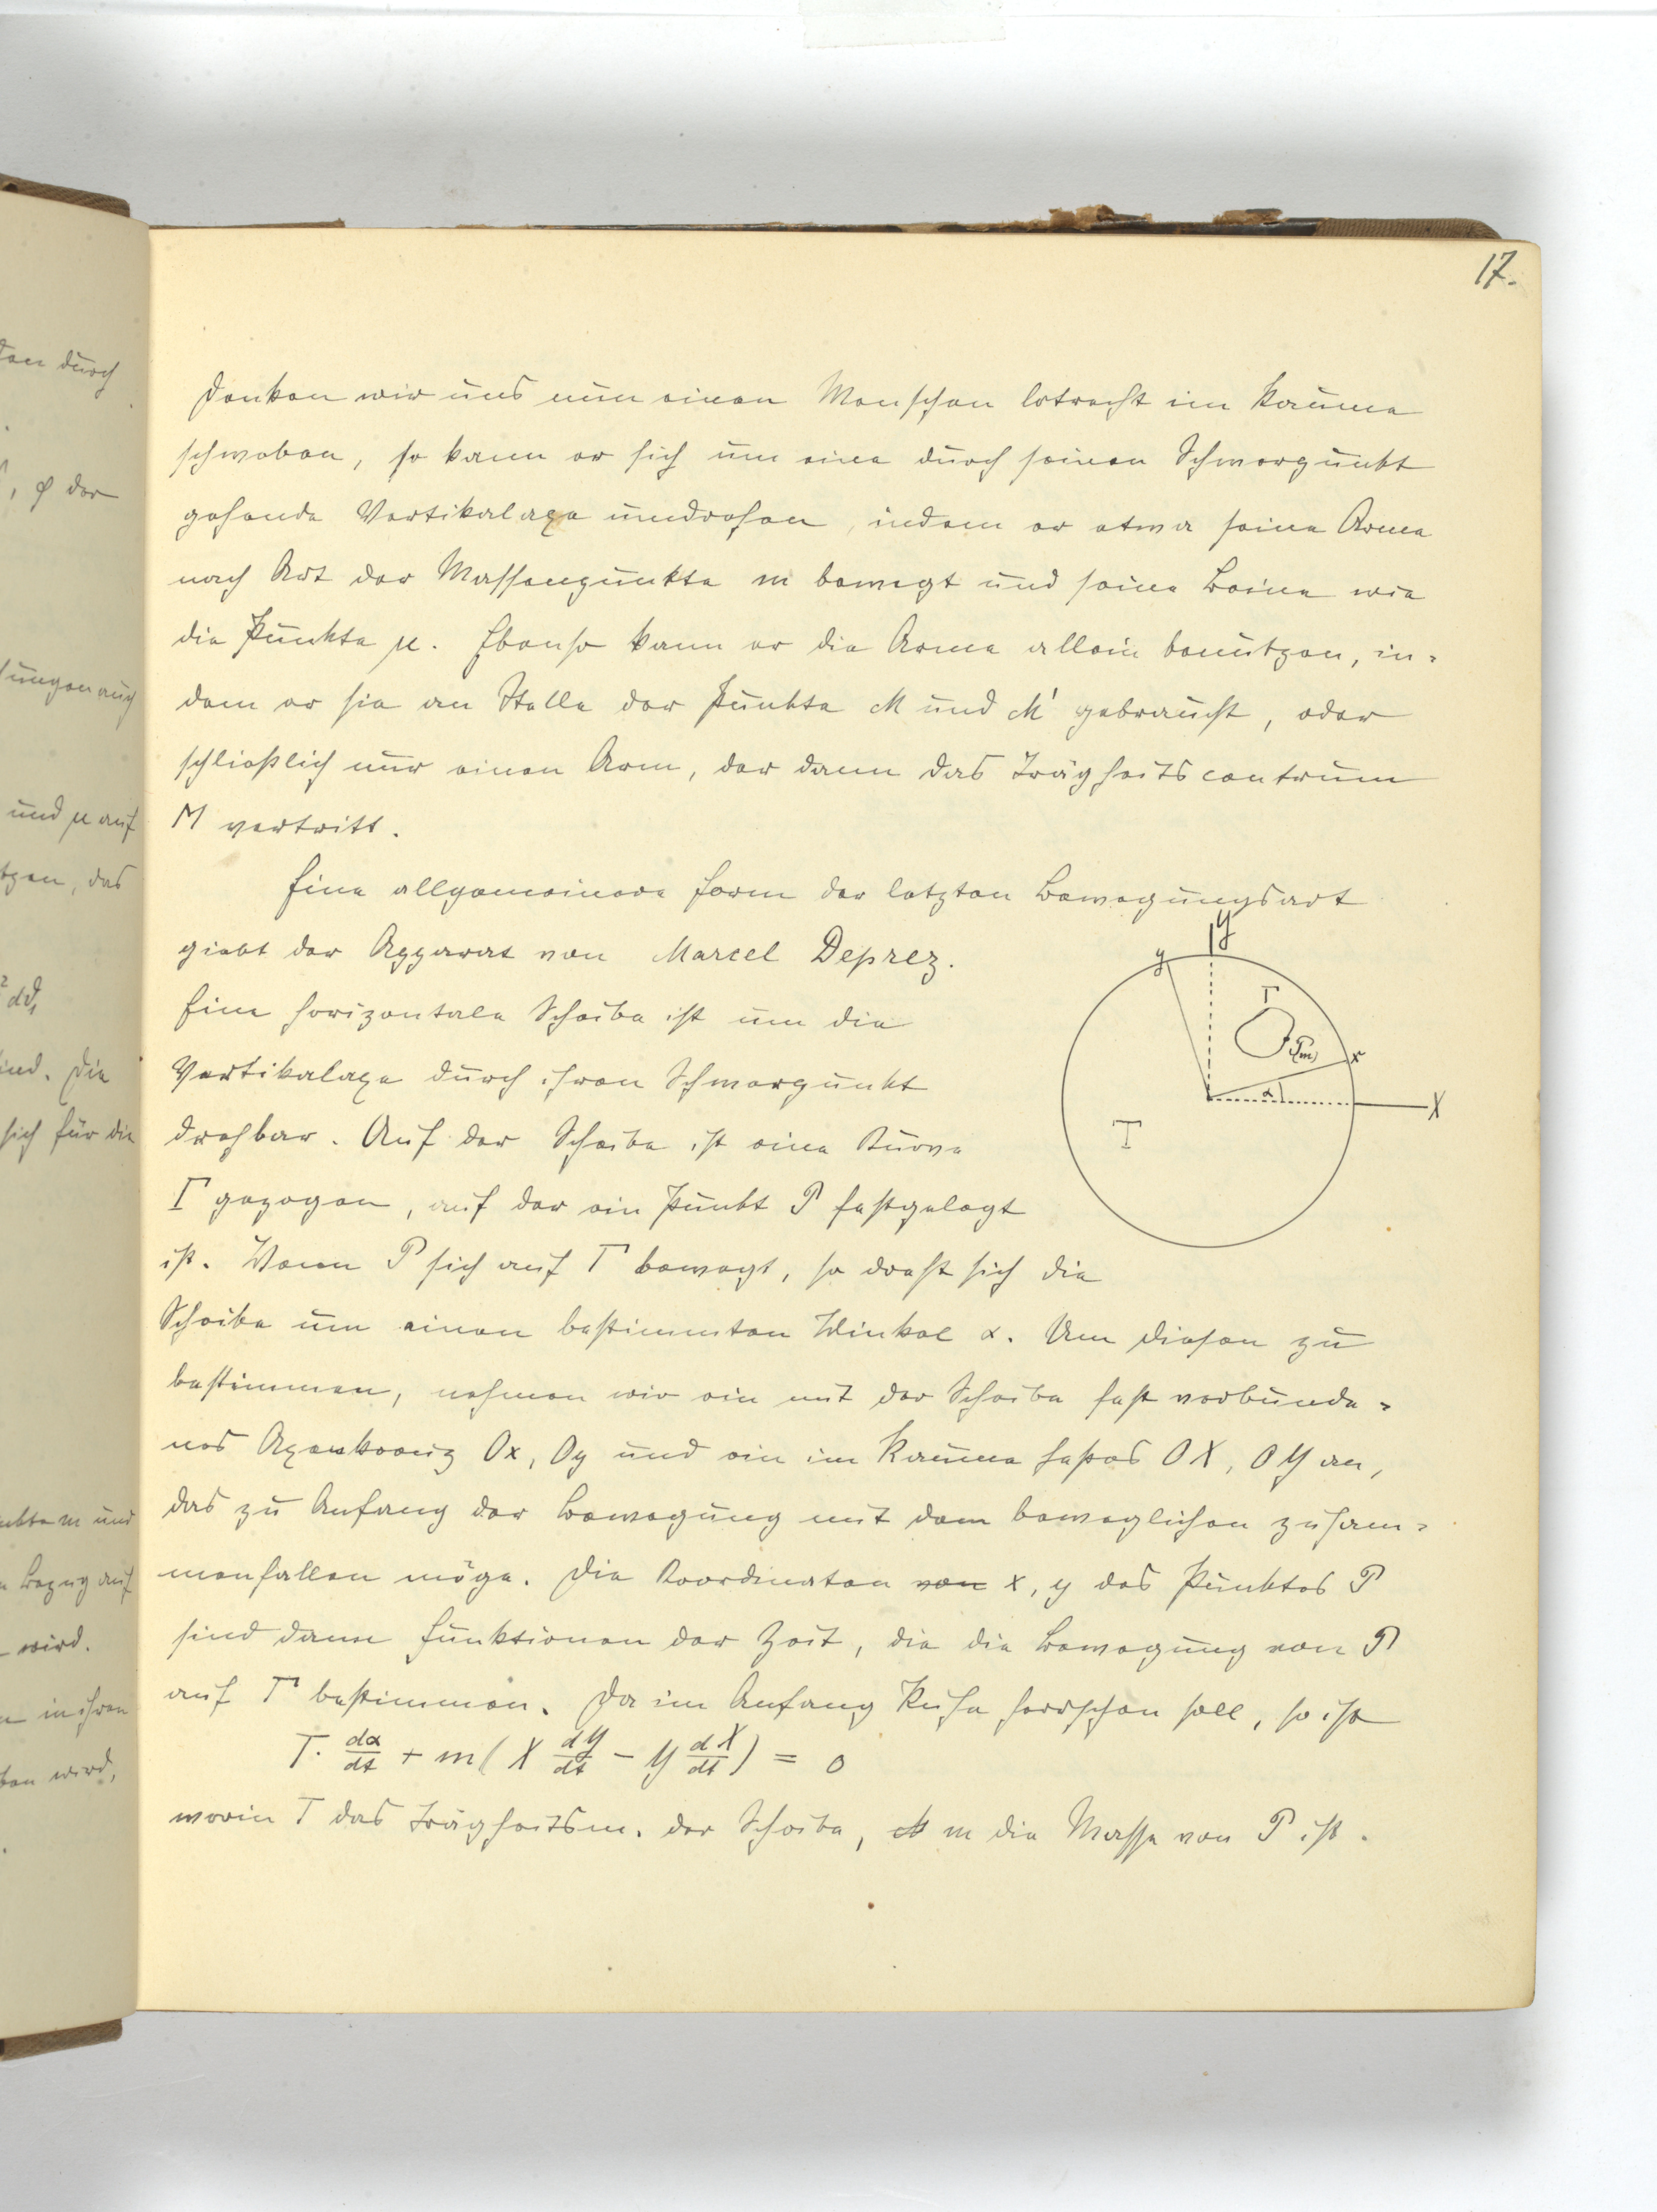 17.
Denken wir uns nun einen Menschen lotrecht im Raume
schweben, so kann er sich um eine durch seinen Schwerpunkt
gehende Vertikalaxe umdrehen, indem er etwa seine Arme
nach Art der Massenpunkte m bewegt und seine Beine wie
die Punkte μ. Ebenso kann er die Arme allein benützen, in-
dem er sie an Stelle der Punkte M und M' gebraucht, oder
schließlich nur einen Arm, der dann das Trägheitscentrum
M vertritt.
Eine allgemeinere Form der letzten Bewegungsart
giebt der Apparat von Marcel Deprez.
Eine horizontale Scheibe ist um die
Vertikalaxe durch ihren Schwerpunkt
drehbar. Auf der Scheibe ist eine Kurve
Γ gezogen, auf der ein Punkt P festgelegt
ist. Wenn P sich auf Γ bewegt, so dreht sich die
Scheibe um einen bestimmten Winkel α. Um diesen zu
bestimmen, nehmen wir ein mit der Scheibe fest verbunde-
nes Axenkreuz Ox, Oy und ein im Raume festes OX, OY an,
das zu Anfang der Bewegung mit dem beweglichen zusam-
menfallen möge. Die Koordinaten von x, y des Punktes P
sind dann Funktionen der Zeit, die die Bewegung von P
auf Γ bestimmen. Da im Anfang Ruhe herrschen soll, so ist
T. dα/dt + m(X dY/dt − Y dX/dt) = 0
worin T das Trägheitsm. der Scheibe, M m die Masse von P ist.
Y
y
Γ
P(m)
x
α
X
T
den durch
, φ der
und μ auf
tzen, das
² dϑ₁
ind. Die
sich für die
unkte m und
n Bezug auf
wird.
n in ihren
ben wird,